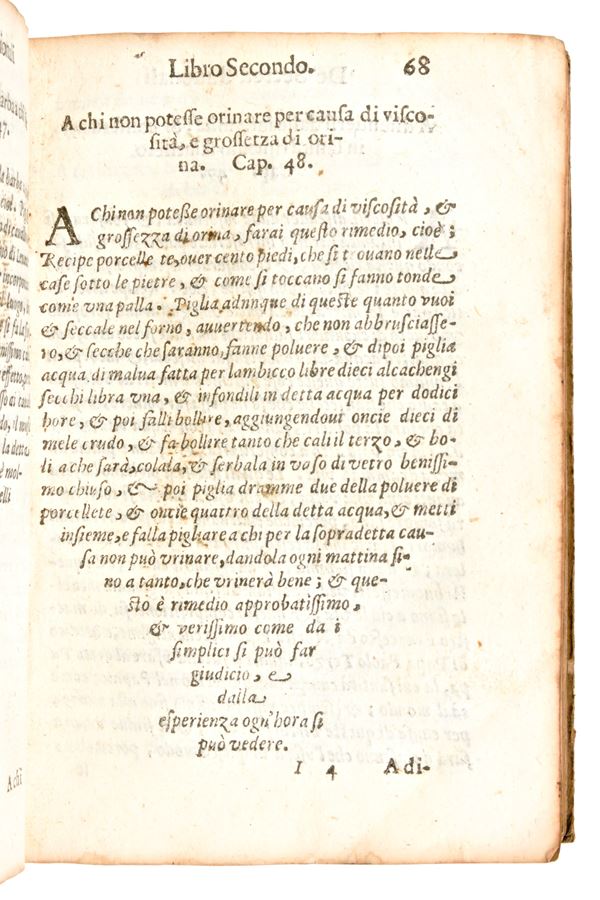 Libro Secondo. 68
A chi non poteſſe orinare per cauſa di viſco-
ſità, e groſſetza di ori-
na. Cap. 48.
A Chi non poteſſe orinare per cauſa di viſcoſità, &
groſſezza di orina, farai queſto rimedio, cioè;
Recipe porcelle te, ouer cento piedi, che ſi t ouano nelle
caſe ſotto le pietre, & come ſi toccano ſi fanno tonde
come vna palla. Piglia adunque di queſte quanto vuoi
& ſeccale nel forno, auuertendo, che non abbruſciaſſe-
ro, & ſecche che ſaranno, fanne poluere, & dipoi piglia
acqua di malua fatta per lambicco libre dieci alcachengi
ſecchi libra vna, & infondili in detta acqua per dodici
hore, & poi falli bollire, aggiungendoui oncie dieci di
mele crudo, & fa bollire tanto che cali il terzo, & bo-
li a che ſarà, colala, & ſerbala in vaſo di vetro beniſſi-
mo chiuſo, & poi piglia dramme due della poluere di
porcellete, & oncie quattro della detta acqua, & metti
inſieme, e falla pigliare a chi per la ſopradetta cau-
ſa non può vrinare, dandola ogni mattina ſi-
no a tanto, che vrinerà bene; & que-
ſto è rimedio approbatiſſimo,
& veriſſimo come da i
ſimplici ſi può far
giudicio, e
dalla
eſperienza ogn'hora ſi
può vedere.
I 4 A di-